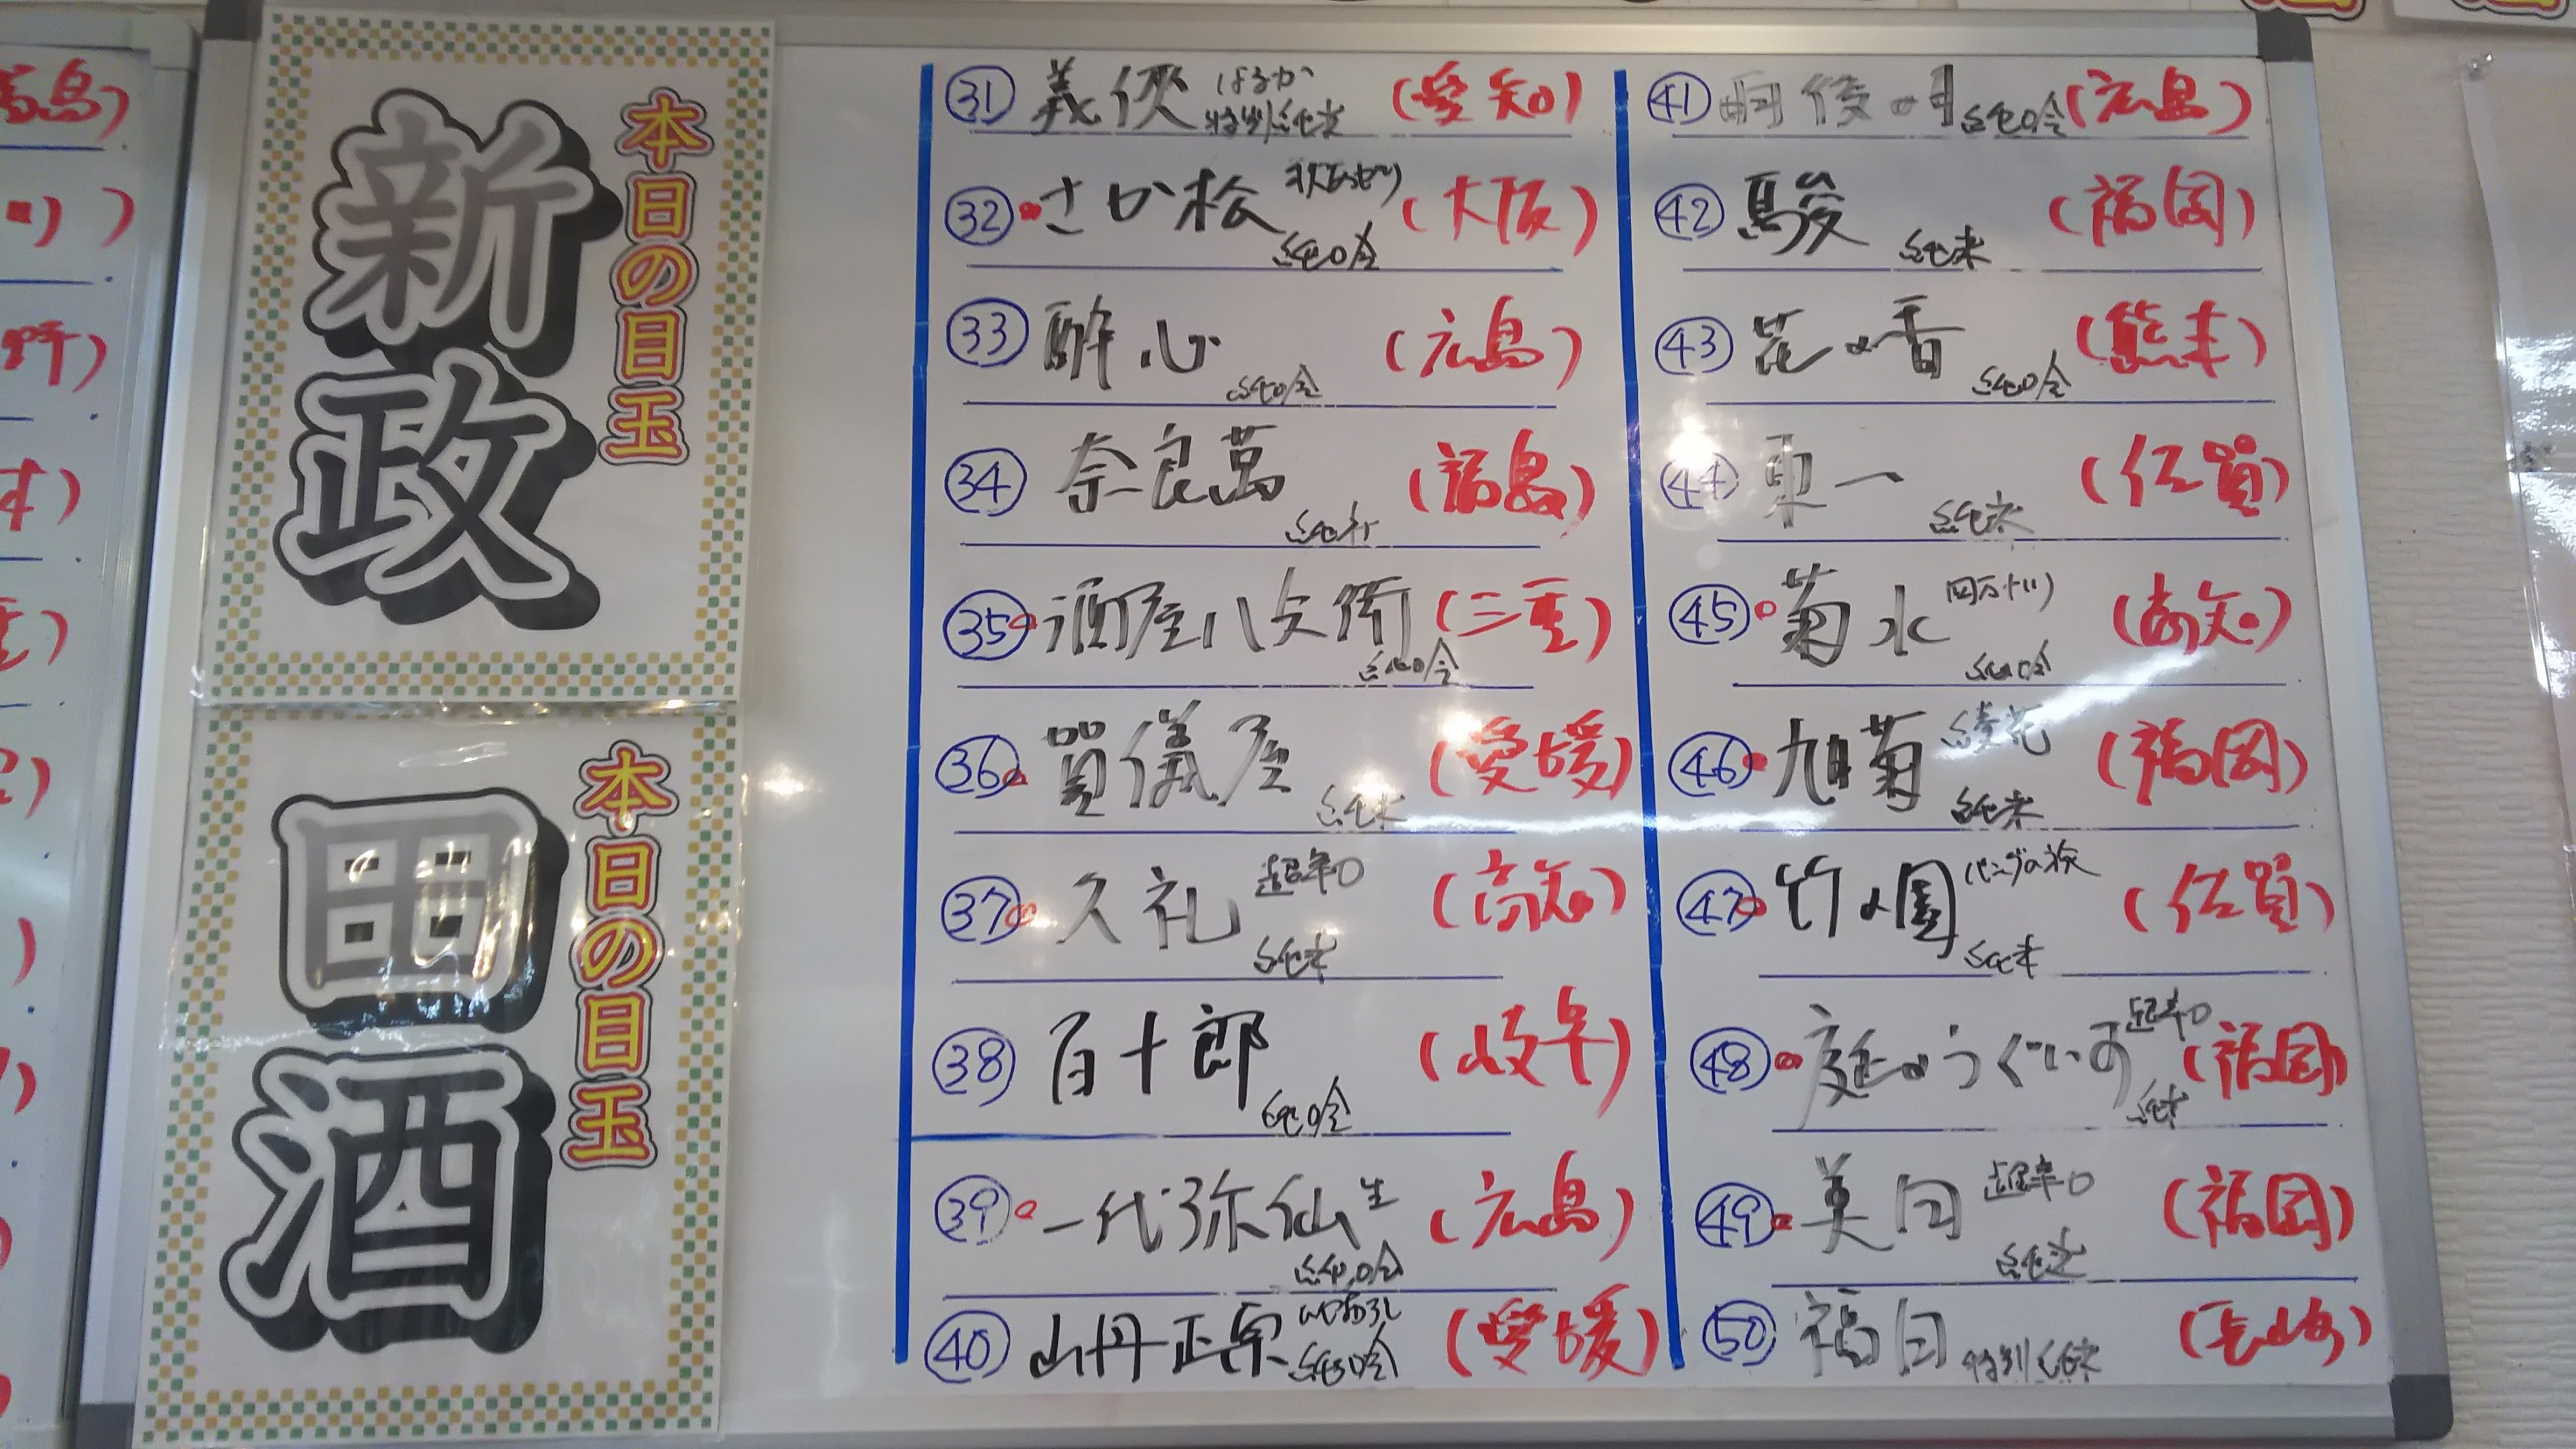 本日の目玉
新政
本日の目玉
田酒
㉛ 義侠 はるか 特別純米 (愛知)
㉜ さか松 純吟 (大阪)
㉝ 酔心 純吟 (広島)
㉞ 奈良萬 純米 (福島)
㉟ 酒屋八兵衛 純吟 (三重)
㊱ 賀儀屋 純米 (愛媛)
㊲ 久礼 超辛口 純米 (高知)
㊳ 百十郎 純吟 (岐阜)
㊴ 一代弥山 生 純吟 (広島)
㊵ 山丹正宗 純吟 (愛媛)
㊶ 雨後の月 純吟 (広島)
㊷ 駿 純米 (福岡)
㊸ 花の香 純吟 (熊本)
㊹ 東一 純米 (佐賀)
㊺ 菊水 四万十川 純吟 (高知)
㊻ 旭菊 綾花 純米 (福岡)
㊼ 竹の園 パンダの旅 純米 (佐賀)
㊽ 庭のうぐいす 超辛口 純米 (福岡)
㊾ 美田 超辛口 純米 (福岡)
㊿ 福田 特別純米 (長崎)